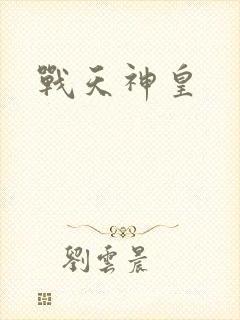 戰天神皇
劉雲晨